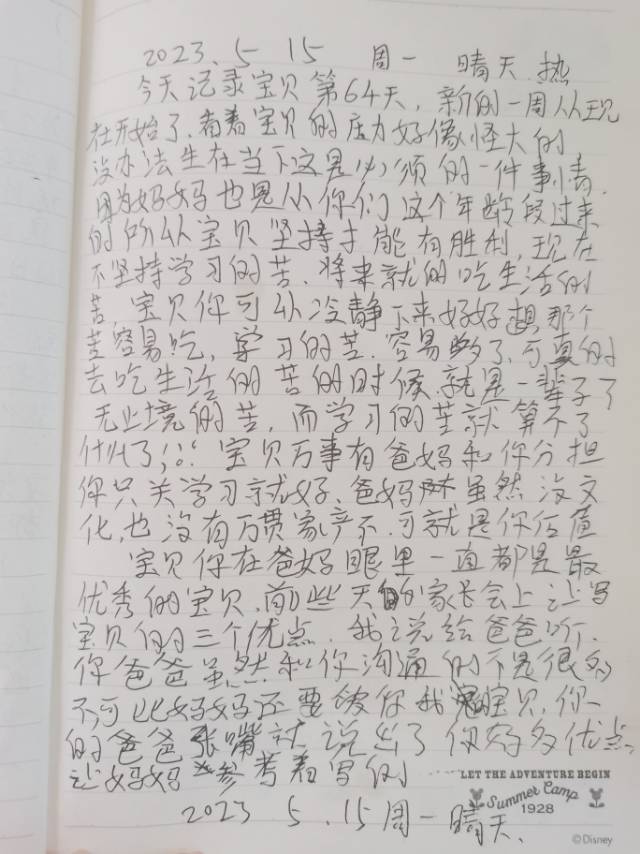 2023.5 15 周一 晴天.热
今天记录宝贝第64天,新的一周从现
在开始了.看着宝贝的压力好像怪大的
没办法生在当下这是必须的一件事情.
因为妈妈也是从你们这个年龄段过来
的所以宝贝坚持才能有胜利,现在
不坚持学习的苦.将来就的吃生活的
苦 宝贝你可以冷静下来好好想那个
苦容易吃,学习的苦.容易多了,可真的
去吃生活的苦的时候.就是一辈子了
无止境的苦,而学习的苦就算不了
什么了;!! 宝贝万事有爸妈和你分担
你只关学习就好.爸妈虽然没文
化,也没有万贯家产不.可就是你后盾
宝贝你在爸妈眼里一直都是最
优秀的宝贝.前些天的家长会上让写
宝贝的三个优点.我说给爸爸听.
你爸爸虽然和你沟通的不是很多
不,可比妈妈还要你我宝贝.你
的爸爸张嘴就说出了你好多优点.
让妈妈参考着写的
LET THE ADVENTURE BEGIN
Summer Camp
1928
2023 5.15周一晴天.
©Disney